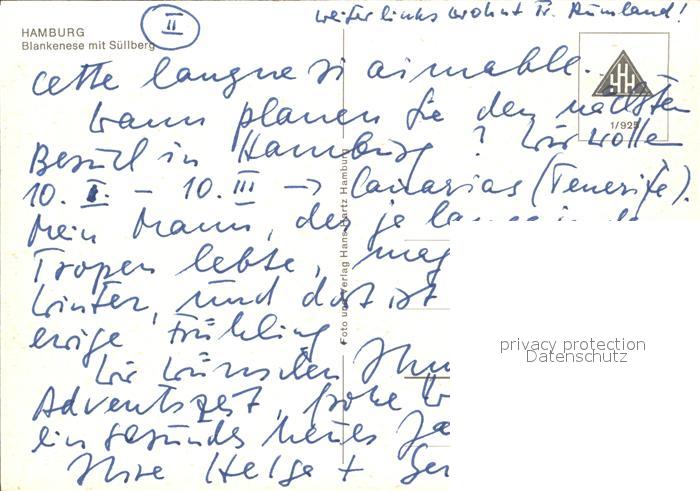 II
weiter links wohnt Fr. Rumland!
HAMBURG
Blankenese mit Süllberg
cette langue si aimable.
HHH
1/925
Wann planen Sie den nächsten
Besuch in Hamburg? Wir wollen
10. I. – 10. III → Canarias (Tenerife).
Mein Mann, der ja lange in de
Tropen lebte, mag
Winter, und dort ist
ewige Frühling
Wir wünschen Ihn
Adventszeit, frohe W
ein gesundes neues Ja
Ihre Helga + Ger
Foto und Verlag Hans Hartz Hamburg
privacy protection
Datenschutz